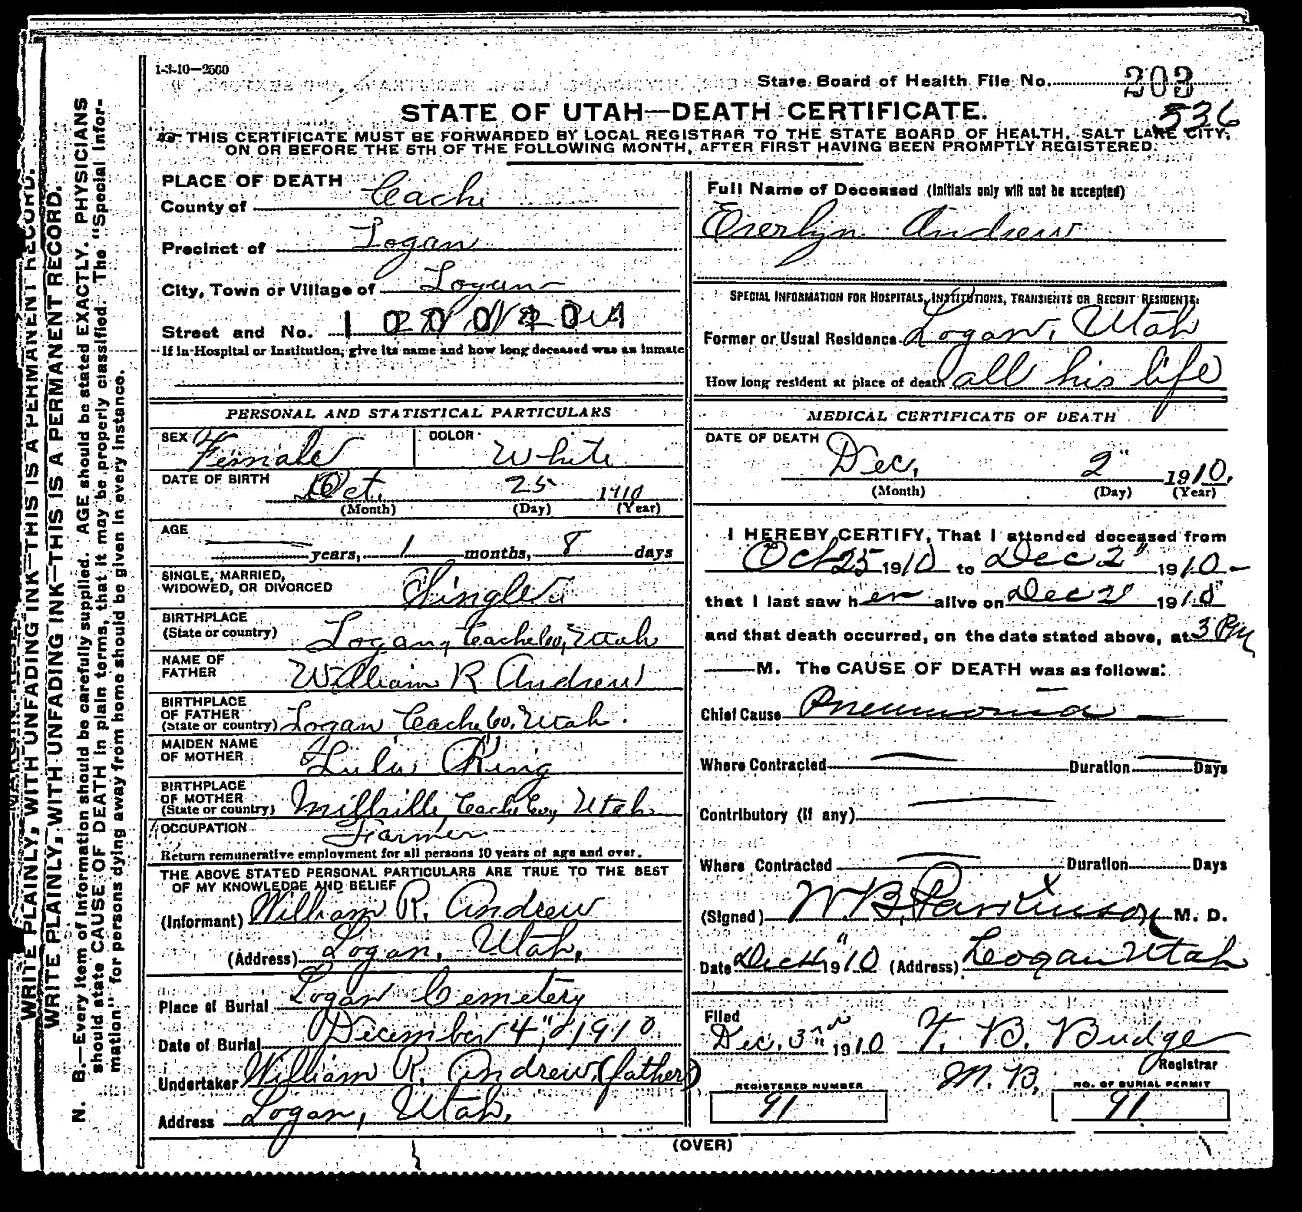 1-3-10—2500
State Board of Health File No. 203
536
STATE OF UTAH—DEATH CERTIFICATE.
THIS CERTIFICATE MUST BE FORWARDED BY LOCAL REGISTRAR TO THE STATE BOARD OF HEALTH, SALT LAKE CITY,
ON OR BEFORE THE 5TH OF THE FOLLOWING MONTH, AFTER FIRST HAVING BEEN PROMPTLY REGISTERED.
WRITE PLAINLY, WITH UNFADING INK—THIS IS A PERMANENT RECORD.
WRITE PLAINLY, WITH UNFADING INK—THIS IS A PERMANENT RECORD.
N. B.—Every item of information should be carefully supplied. AGE should be stated EXACTLY. PHYSICIANS
should state CAUSE OF DEATH in plain terms, that it may be properly classified. The "Special Infor-
mation" for persons dying away from home should be given in every instance.
PLACE OF DEATH
County of Cache
Precinct of Logan
City, Town or Village of Logan
Street and No.
If in Hospital or Institution, give its name and how long deceased was an inmate
PERSONAL AND STATISTICAL PARTICULARS
SEX Female COLOR White
DATE OF BIRTH Oct. 25 1910
(Month) (Day) (Year)
AGE
years, 1 months, 8 days
SINGLE, MARRIED,
WIDOWED, OR DIVORCED Single
BIRTHPLACE
(State or country) Logan, Cache Co, Utah
NAME OF
FATHER William R Andrew
BIRTHPLACE
OF FATHER
(State or country) Logan Cache Co. Utah.
MAIDEN NAME
OF MOTHER Lulu King
BIRTHPLACE
OF MOTHER
(State or country) Millville Cache Co, Utah
OCCUPATION Farmer
Return remunerative employment for all persons 10 years of age and over.
THE ABOVE STATED PERSONAL PARTICULARS ARE TRUE TO THE BEST
OF MY KNOWLEDGE AND BELIEF
(Informant) William R. Andrew
(Address) Logan, Utah,
Place of Burial Logan Cemetery
Date of Burial December 4", 1910
Undertaker William R. Andrew, (father)
Address Logan, Utah,
Full Name of Deceased (Initials only will not be accepted)
Everlyn Andrew
SPECIAL INFORMATION FOR HOSPITALS, INSTITUTIONS, TRANSIENTS OR RECENT RESIDENTS:
Former or Usual Residence Logan, Utah
How long resident at place of death all his life
MEDICAL CERTIFICATE OF DEATH
DATE OF DEATH
Dec. 2" 1910.
(Month) (Day) (Year)
I HEREBY CERTIFY, That I attended deceased from
Oct 25 1910 to Dec 2" 1910
that I last saw her alive on Dec 2" 1910
and that death occurred, on the date stated above, at 3 PM
M. The CAUSE OF DEATH was as follows:
Chief Cause Pneumonia
Where Contracted Duration Days
Contributory (if any)
Where Contracted Duration Days
(Signed) W B. Parkinson M. D.
Date Dec 4" 1910 (Address) Logan Utah
Filed
Dec. 3rd 1910 T. B. Budge
M. B. Registrar
REGISTERED NUMBER NO. OF BURIAL PERMIT
91 91
(OVER)